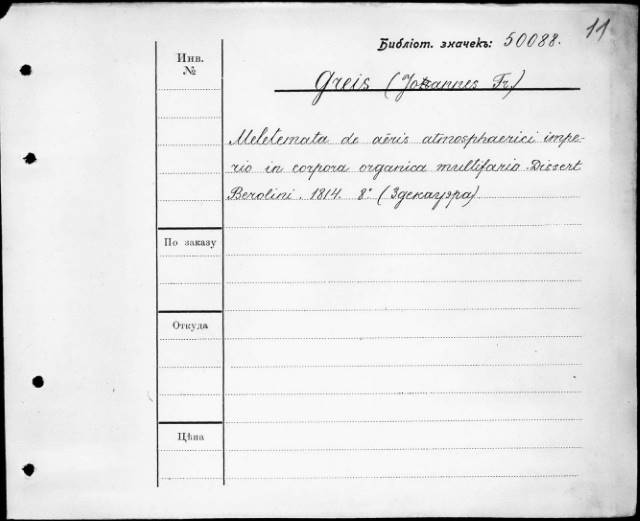 11
Библіот. значекъ: 50088.
Инв.
№
Greis (Johannes Fr.)
Meletemata de aëris atmosphaerici impe-
rio in corpora organica multifario. Dissert
Berolini. 1814. 8° (Эдекауэра).
По заказу
Откуда
Цѣна